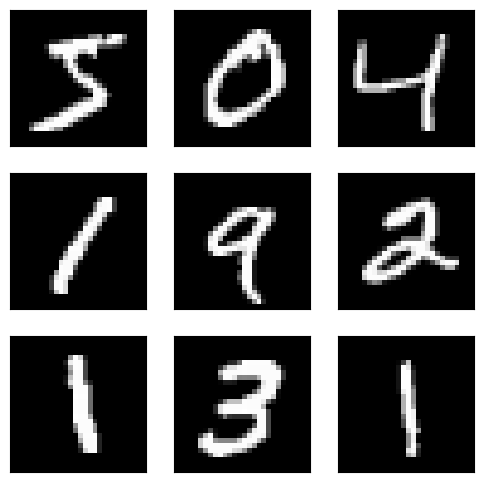 5 0 4
1 9 2
1 3 1